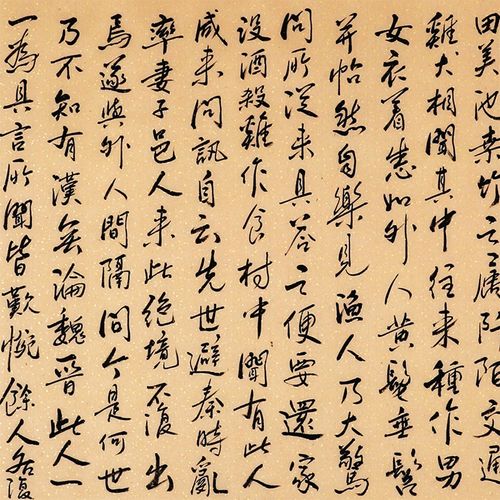 田美池桑竹之属阡陌交通
雞犬相聞其中往来種作男
女衣着悉如外人黄髮垂髫
并怡然自樂見漁人乃大驚
問所從来具答之便要還家
設酒殺雞作食村中聞有此人
咸来問訊自云先世避秦時亂
率妻子邑人来此绝境不復出
焉遂與外人間隔問今是何世
乃不知有漢無論魏晋此人一
一為具言所聞皆歎惋餘人各復